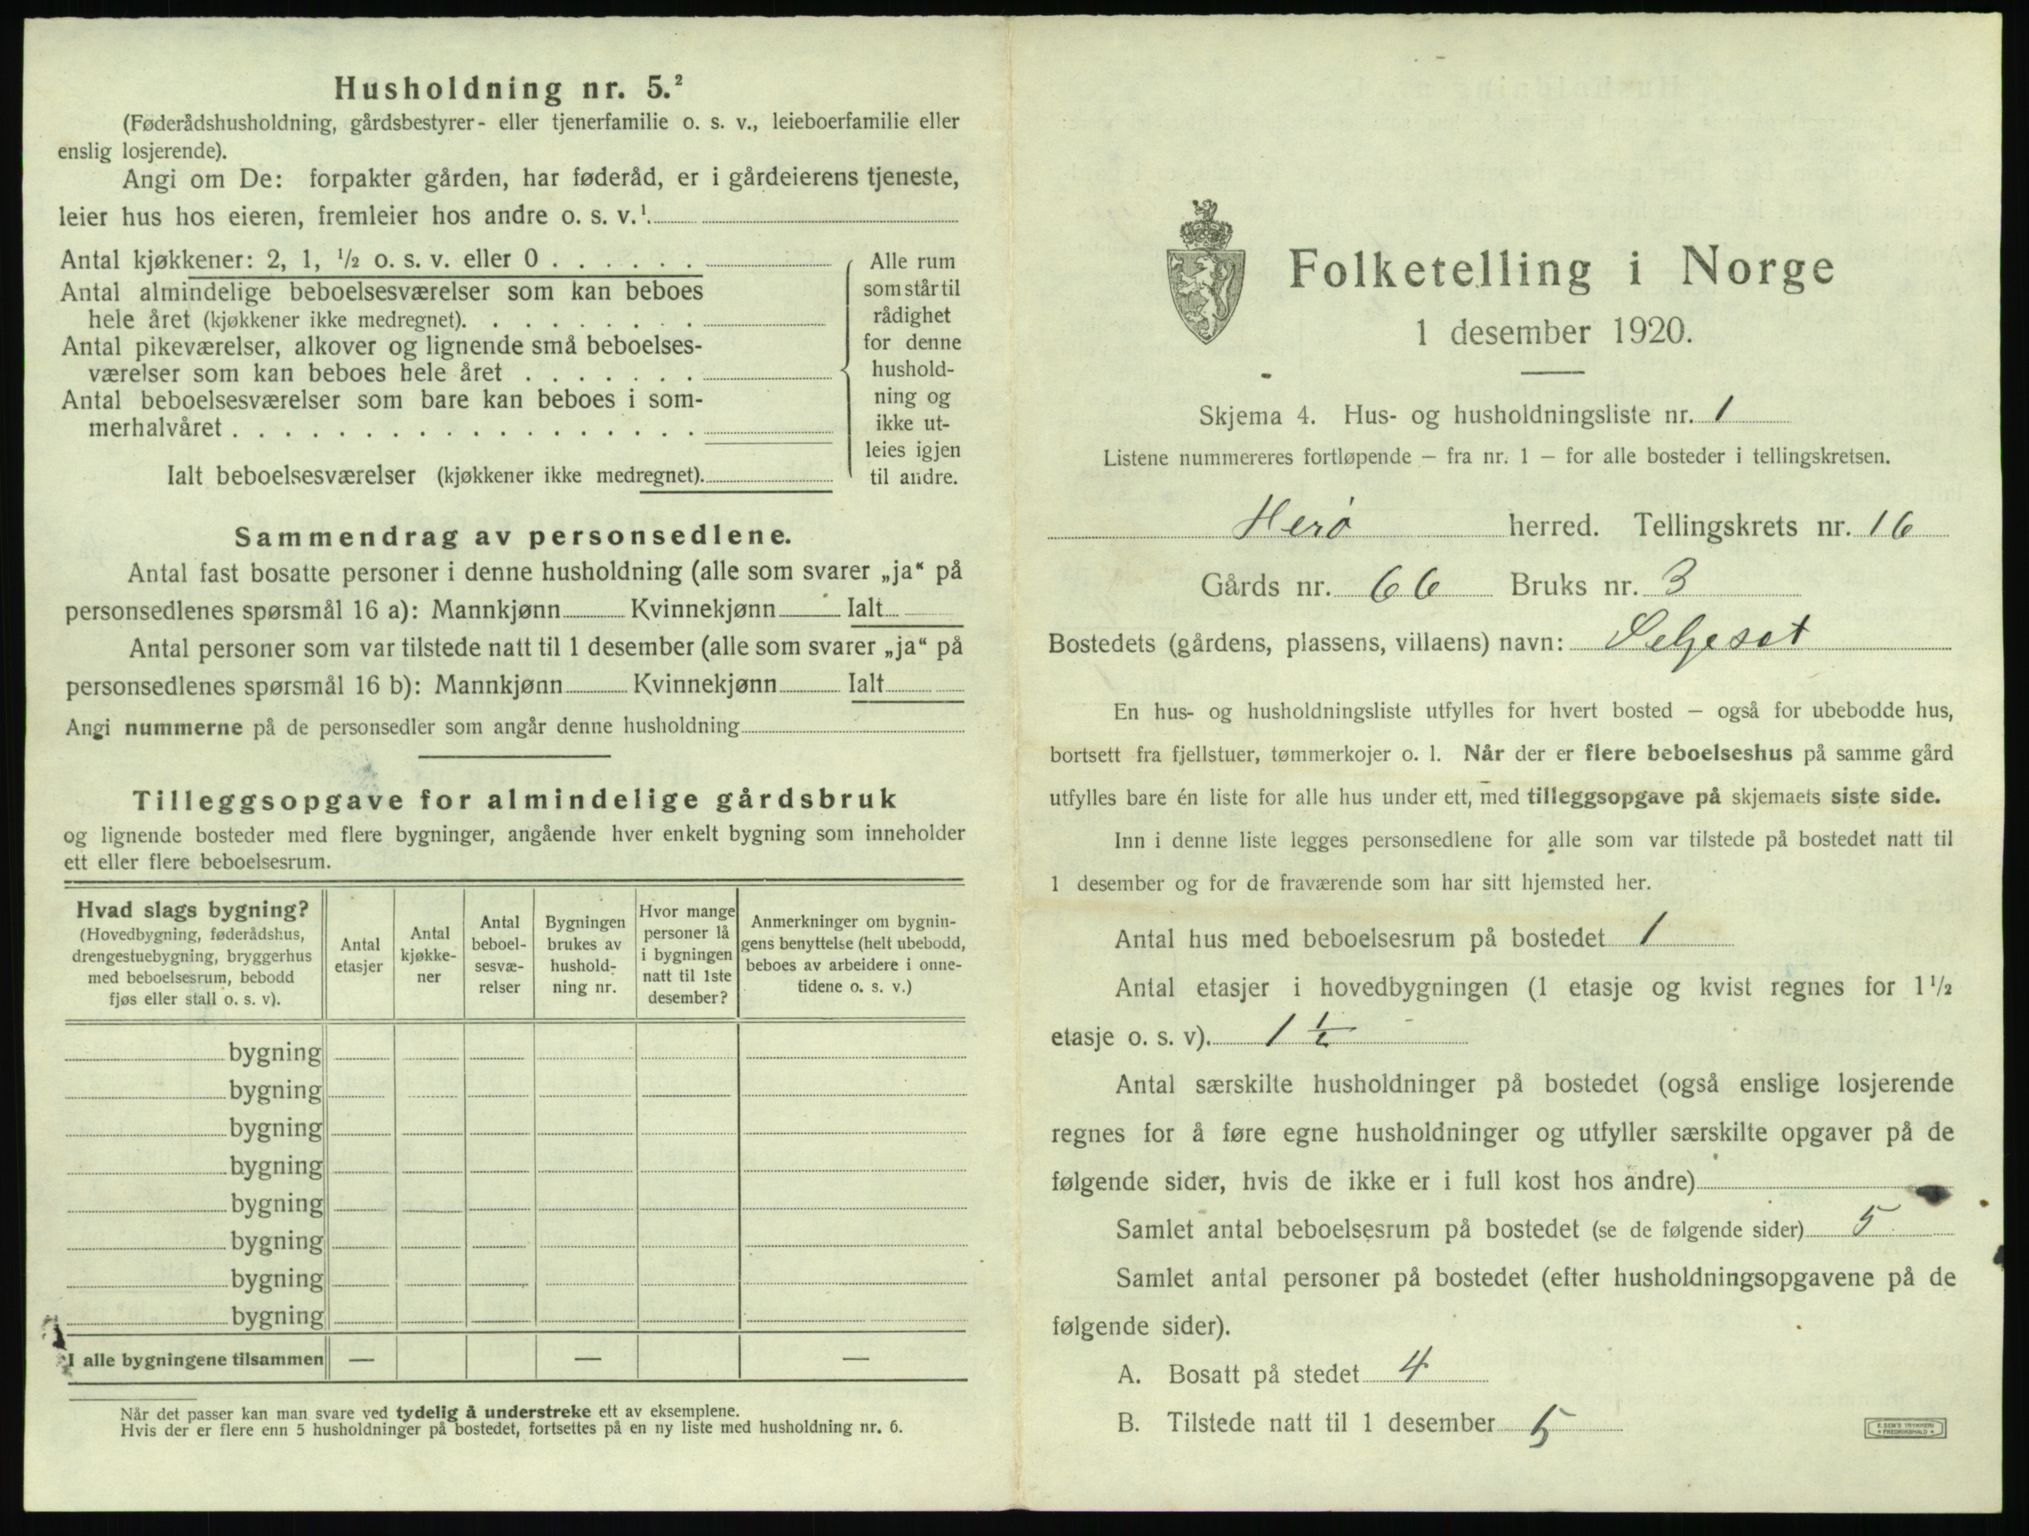 Husholdning nr. 5.²
(Føderådshusholdning, gårdsbestyrer- eller tjenerfamilie o. s. v., leieboerfamilie eller
enslig losjerende).
Angi om De: forpakter gården, har føderåd, er i gårdeierens tjeneste,
leier hus hos eieren, fremleier hos andre o. s. v.¹
Antal kjøkkener: 2, 1, ½ o. s. v. eller 0 . . . . . .
Antal almindelige beboelsesværelser som kan beboes
hele året (kjøkkener ikke medregnet). . . . . . . . .
Antal pikeværelser, alkover og lignende små beboelses-
værelser som kan beboes hele året . . . . . . .
Antal beboelsesværelser som bare kan beboes i som-
merhalvåret . . . . . . . . . . . . . . . . . .
Ialt beboelsesværelser (kjøkkener ikke medregnet).
Alle rum
som står til
rådighet
for denne
hushold-
ning og
ikke ut-
leies igjen
til andre.
Sammendrag av personsedlene.
Antal fast bosatte personer i denne husholdning (alle som svarer „ja“ på
personsedlenes spørsmål 16 a): Mannkjønn Kvinnekjønn Ialt
Antal personer som var tilstede natt til 1 desember (alle som svarer „ja“ på
personsedlenes spørsmål 16 b): Mannkjønn Kvinnekjønn Ialt
Angi nummerne på de personsedler som angår denne husholdning
Tilleggsopgave for almindelige gårdsbruk
og lignende bosteder med flere bygninger, angående hver enkelt bygning som inneholder
ett eller flere beboelsesrum.
Hvad slags bygning?
(Hovedbygning, føderådshus,
drengestuebygning, bryggerhus
med beboelsesrum, bebodd
fjøs eller stall o. s. v).
Antal
etasjer
Antal
kjøkke-
ner
Antal
beboel-
sesvæ-
relser
Bygningen
brukes av
hushold-
ning nr.
Hvor mange
personer lå
i bygningen
natt til 1ste
desember?
Anmerkninger om bygnin-
gens benyttelse (helt ubebodd,
beboes av arbeidere i onne-
tidene o. s. v.)
bygning
bygning
bygning
bygning
bygning
bygning
bygning
bygning
I alle bygningene tilsammen — — —
Når det passer kan man svare ved tydelig å understreke ett av eksemplene.
Hvis der er flere enn 5 husholdninger på bostedet, fortsettes på en ny liste med husholdning nr. 6.
Folketelling i Norge
1 desember 1920.
Skjema 4. Hus- og husholdningsliste nr. 1
Listene nummereres fortløpende – fra nr. 1 – for alle bosteder i tellingskretsen.
Herö herred. Tellingskrets nr. 16
Gårds nr. 66 Bruks nr. 3
Bostedets (gårdens, plassens, villaens) navn: Seljeset
En hus- og husholdningsliste utfylles for hvert bosted – også for ubebodde hus,
bortsett fra fjellstuer, tømmerkojer o. l. Når der er flere beboelseshus på samme gård
utfylles bare én liste for alle hus under ett, med tilleggsopgave på skjemaets siste side.
Inn i denne liste legges personsedlene for alle som var tilstede på bostedet natt til
1 desember og for de fraværende som har sitt hjemsted her.
Antal hus med beboelsesrum på bostedet 1
Antal etasjer i hovedbygningen (1 etasje og kvist regnes for 1½
etasje o. s. v). 1 ½
Antal særskilte husholdninger på bostedet (også enslige losjerende
regnes for å føre egne husholdninger og utfyller særskilte opgaver på de
følgende sider, hvis de ikke er i full kost hos andre)
Samlet antal beboelsesrum på bostedet (se de følgende sider) 5
Samlet antal personer på bostedet (efter husholdningsopgavene på de
følgende sider).
A. Bosatt på stedet 4
B. Tilstede natt til 1 desember 5
E. SEM'S TRYKKERI
FREDRIKSHALD